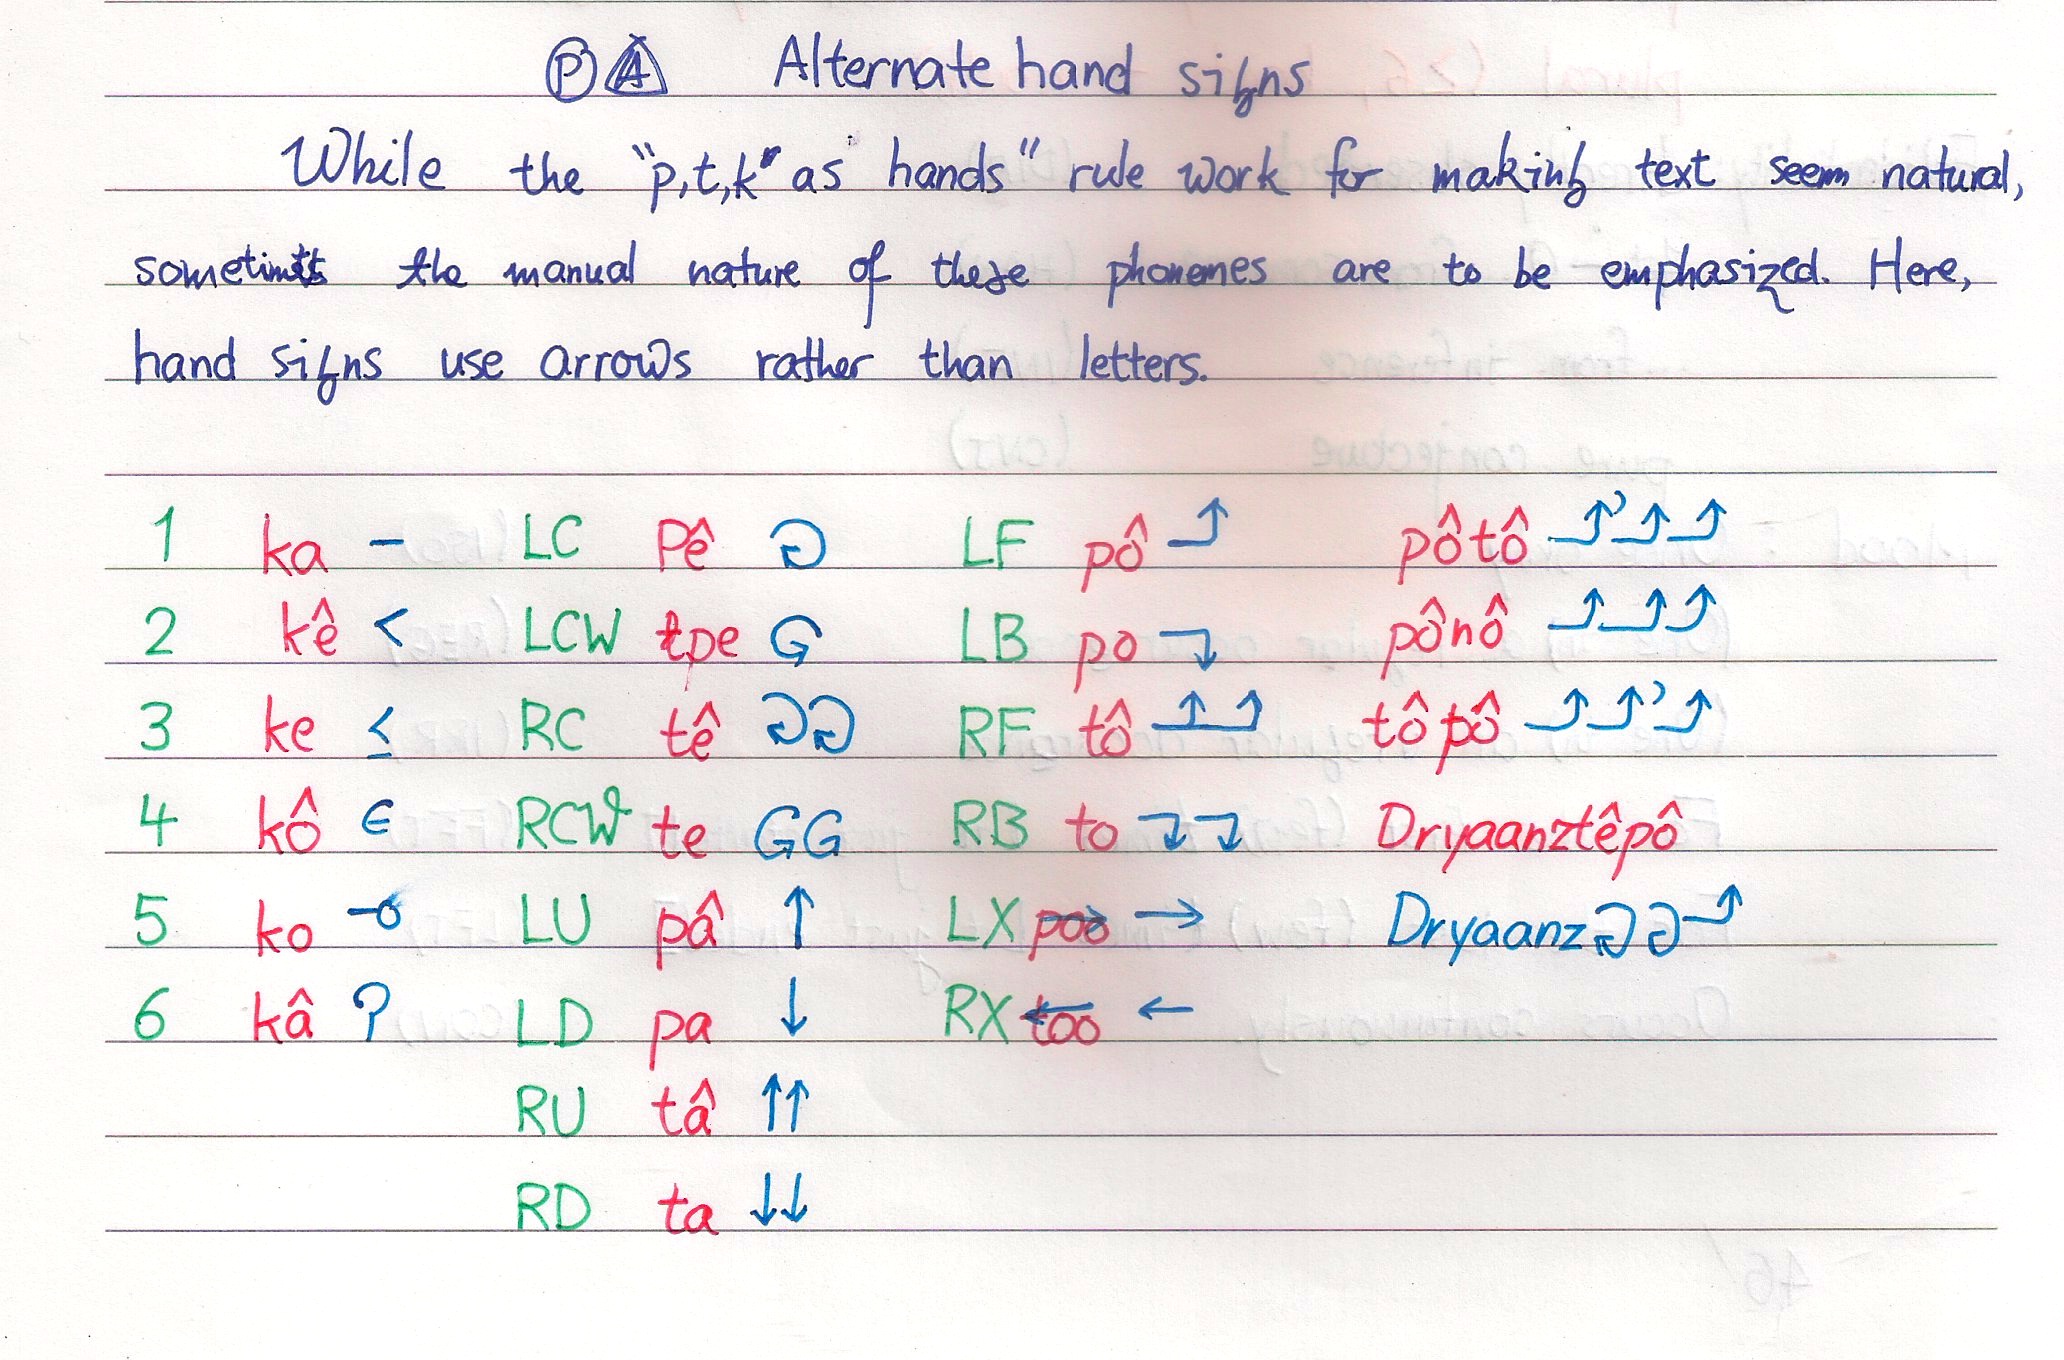 Ⓟ A Alternate hand signs
While the "p,t,k" as hands" rule work for making text seem natural,
sometimes the manual nature of these phonemes are to be emphasized. Here,
hand signs use arrows rather than letters.
1 ka – LC Pê LF pô pôtô
2 kê < LCW tpe LB po pônô
3 ke ≤ RC tê RF tô tôpô
4 kô ∈ RCW te GG RB to Dryaanztêpô
5 ko LU pâ ↑ LX poo → Dryaanz
6 kâ ? LD pa ↓ RX too ←
RU tâ ↑↑
RD ta ↓↓